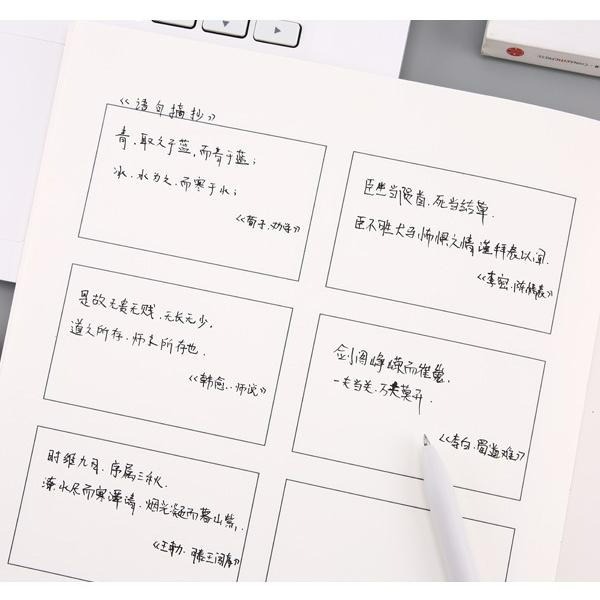 《语句摘抄》
青，取之于蓝，而青于蓝；
冰，水为之，而寒于水；
《荀子·劝学》
臣生当陨首，死当结草，
臣不胜犬马怖惧之情，谨拜表以闻．
《李密·陈情表》
是故无贵无贱，无长无少，
道之所存，师之所存也．
《韩愈·师说》
剑阁峥嵘而崔嵬，
一夫当关，万夫莫开．
《李白·蜀道难》
时维九月，序属三秋．
潦水尽而寒潭清，烟光凝而暮山紫，
《王勃·滕王阁序》